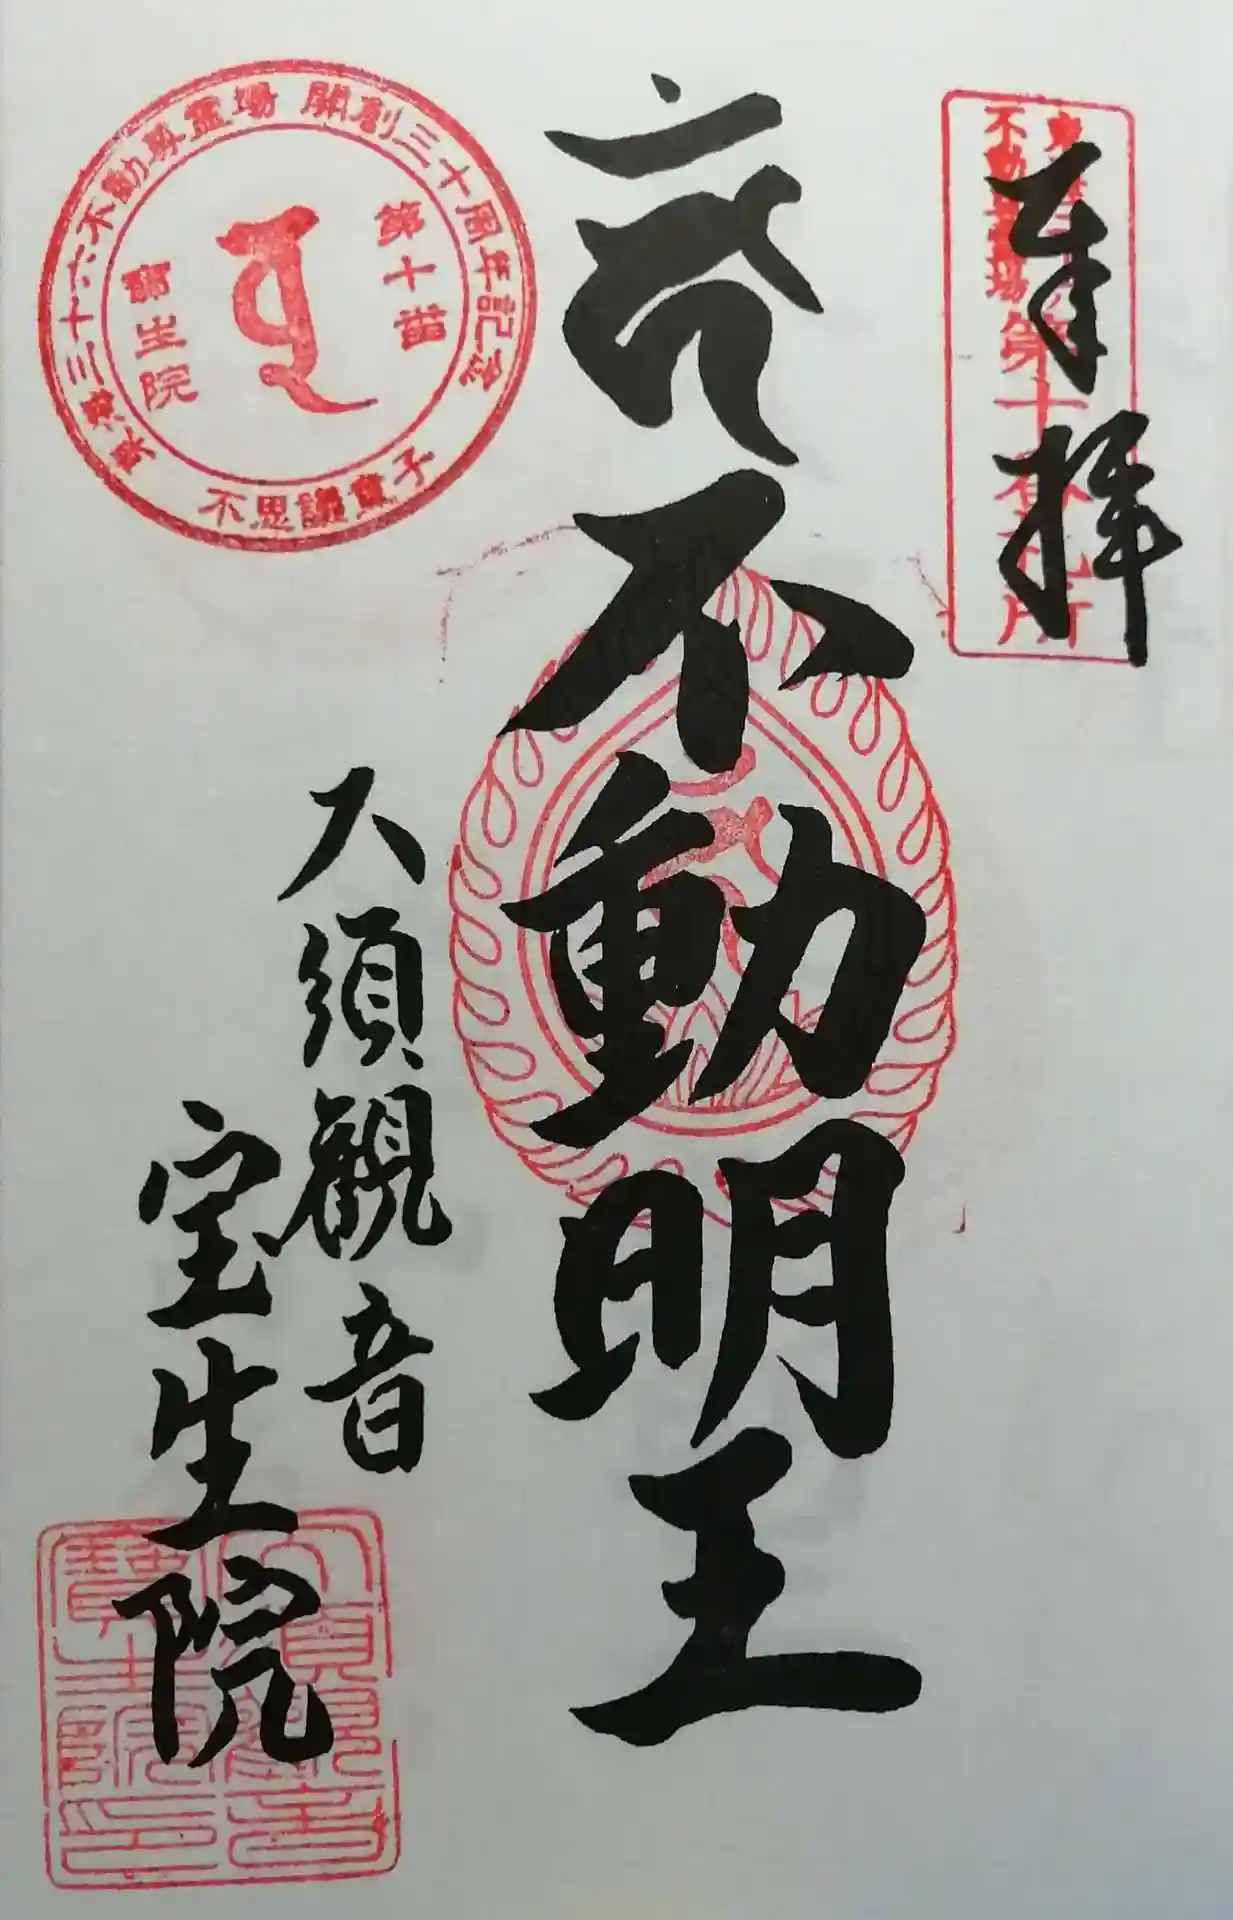 奉拝
東海三十六
不動尊霊場
第十番札所
不動明王
大須観音
宝生院
東海三十六不動尊霊場 開創三十周年記念
第十番
寶生院
不思議童子
大須観音
寶生院印